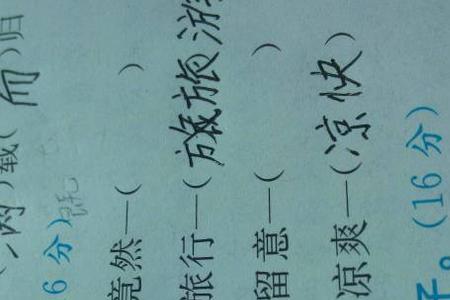 (满)载(而)归
6 分)
竟然—(      )
旅行—(旅旅游
留意—(      )
凉爽—(凉快)
。(16 分)